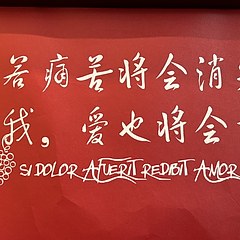 若痛苦将会消
我，爱也将会
SI DOLOR AFUERIT REDIBIT AMOR